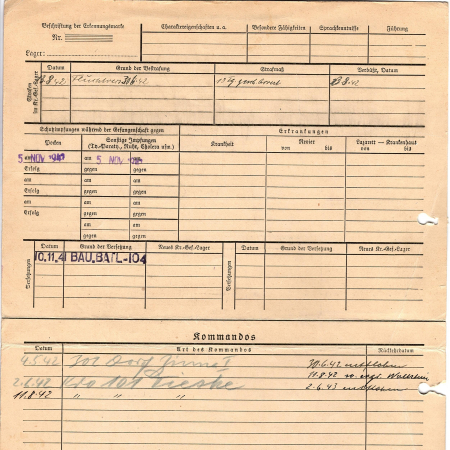 Beschriftung der Erkennungsmarke
Nr.
Lager:
Charaktereigenschaften u.a. Besondere Fähigkeiten Sprachkenntnisse Führung
Strafen im Kr.-Gef.-Lager
Datum Grund der Bestrafung Strafmaß Verbüßt, Datum
8.42
Schutzimpfungen während der Gefangenschaft gegen Erkrankungen
Pocken Sonstige Impfungen (Ty.-Paraty., Ruhr, Cholera usw.) Krankheit Revier von bis Lazarett — Krankenhaus von bis
5 NOV 1941 am 5 NOV 1941
Erfolg gegen
am am
Erfolg gegen
am am
Erfolg gegen
am
gegen
am
gegen
Versetzungen
Datum Grund der Versetzung Neues Kr.-Gef.-Lager Datum Grund der Versetzung Neues Kr.-Gef.-Lager
10.11.41 BAU.BATL-104
Versetzungen
Kommandos
Datum Art des Kommandos Rückkehrdatum
4.5.42 302 Dorf 30.6.42 entflohen
2.6.42 Kdo 101 Lieske 11.8.42
11.8.42 " " " 2.6.43 entflohen